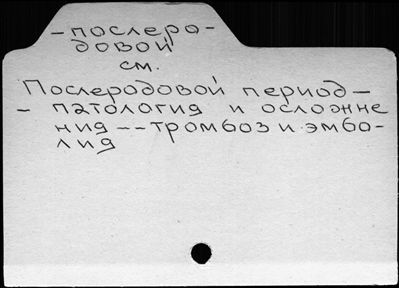 -послеро-
довой
см.
Послеродовой период-
- патология и осложне
ния -- тромбоз и эмбо-
лия